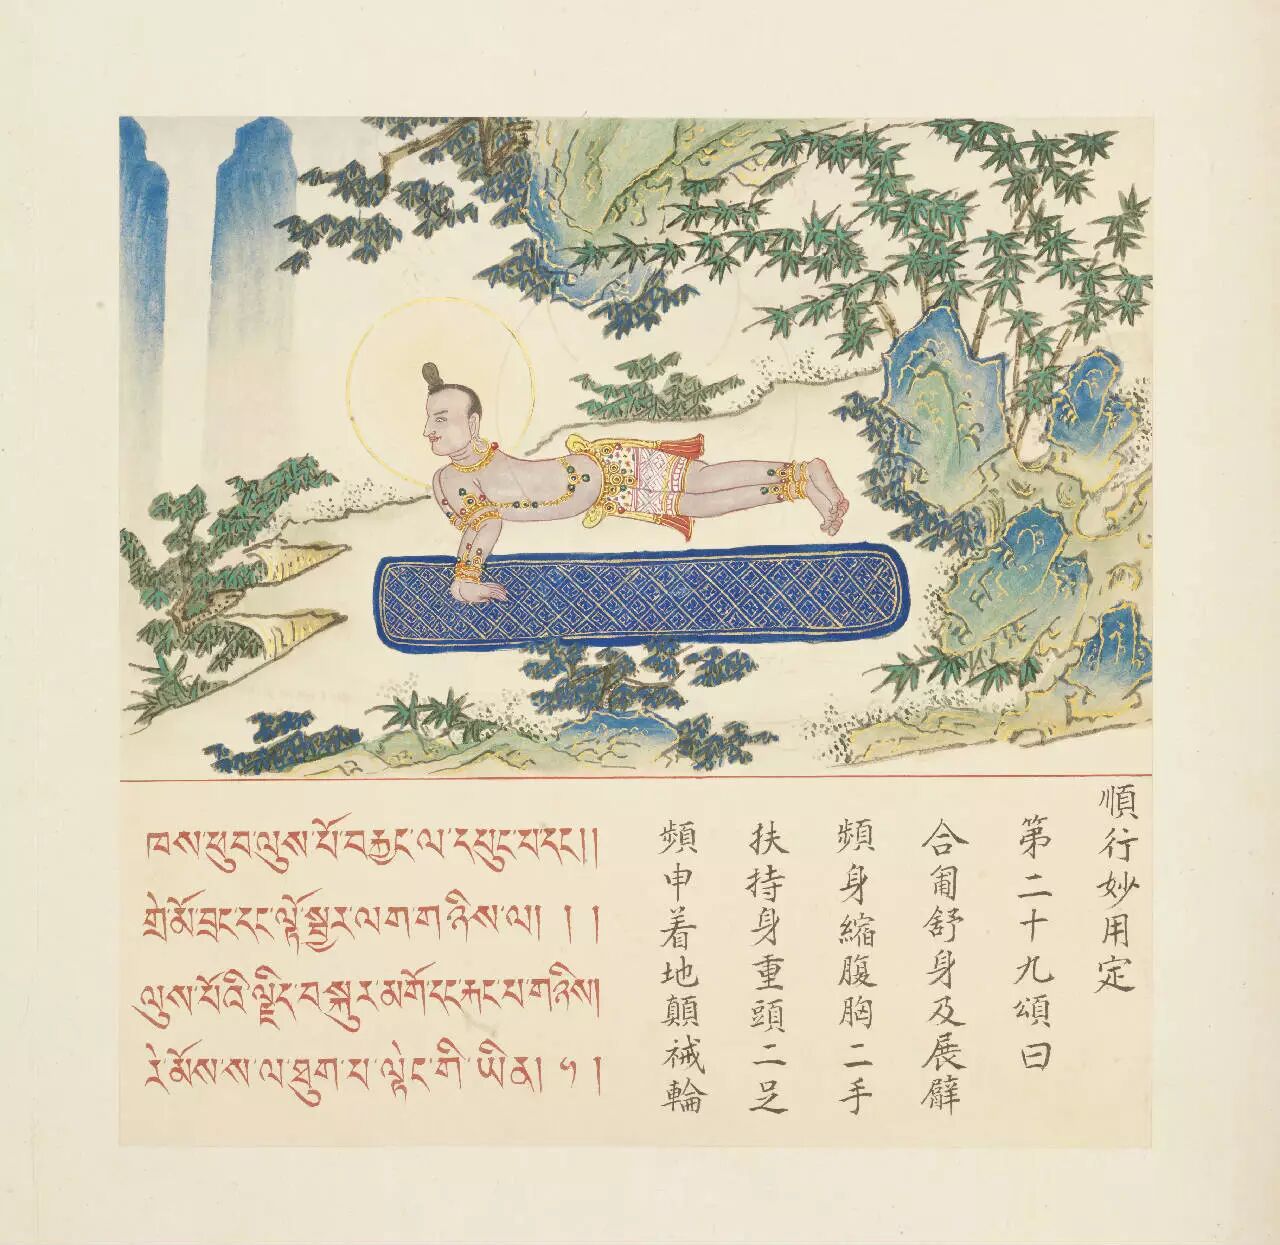 順行妙用定
第二十九頌曰
合匍舒身及展臂
頻身縮腹胸二手
扶持身重頭二足
頻申着地顛裓輪
ཁས་ཕུབ་ལུས་པོ་བརྐྱང་ལ་དཔུང་པ་དང་།།
གྲེ་མོ་བྲང་དང་ལྟེ་སྦྱར་ལག་ག་ཉིས་ལ། ། །
ལུས་པོའི་ལྗིད་བ་སྐུར་མགོ་དང་རྐང་པ་གཉིས།
རེ་མོས་ས་ལ་ཐུག་པ་ལྟེང་གི་ཡིན། ༥ །